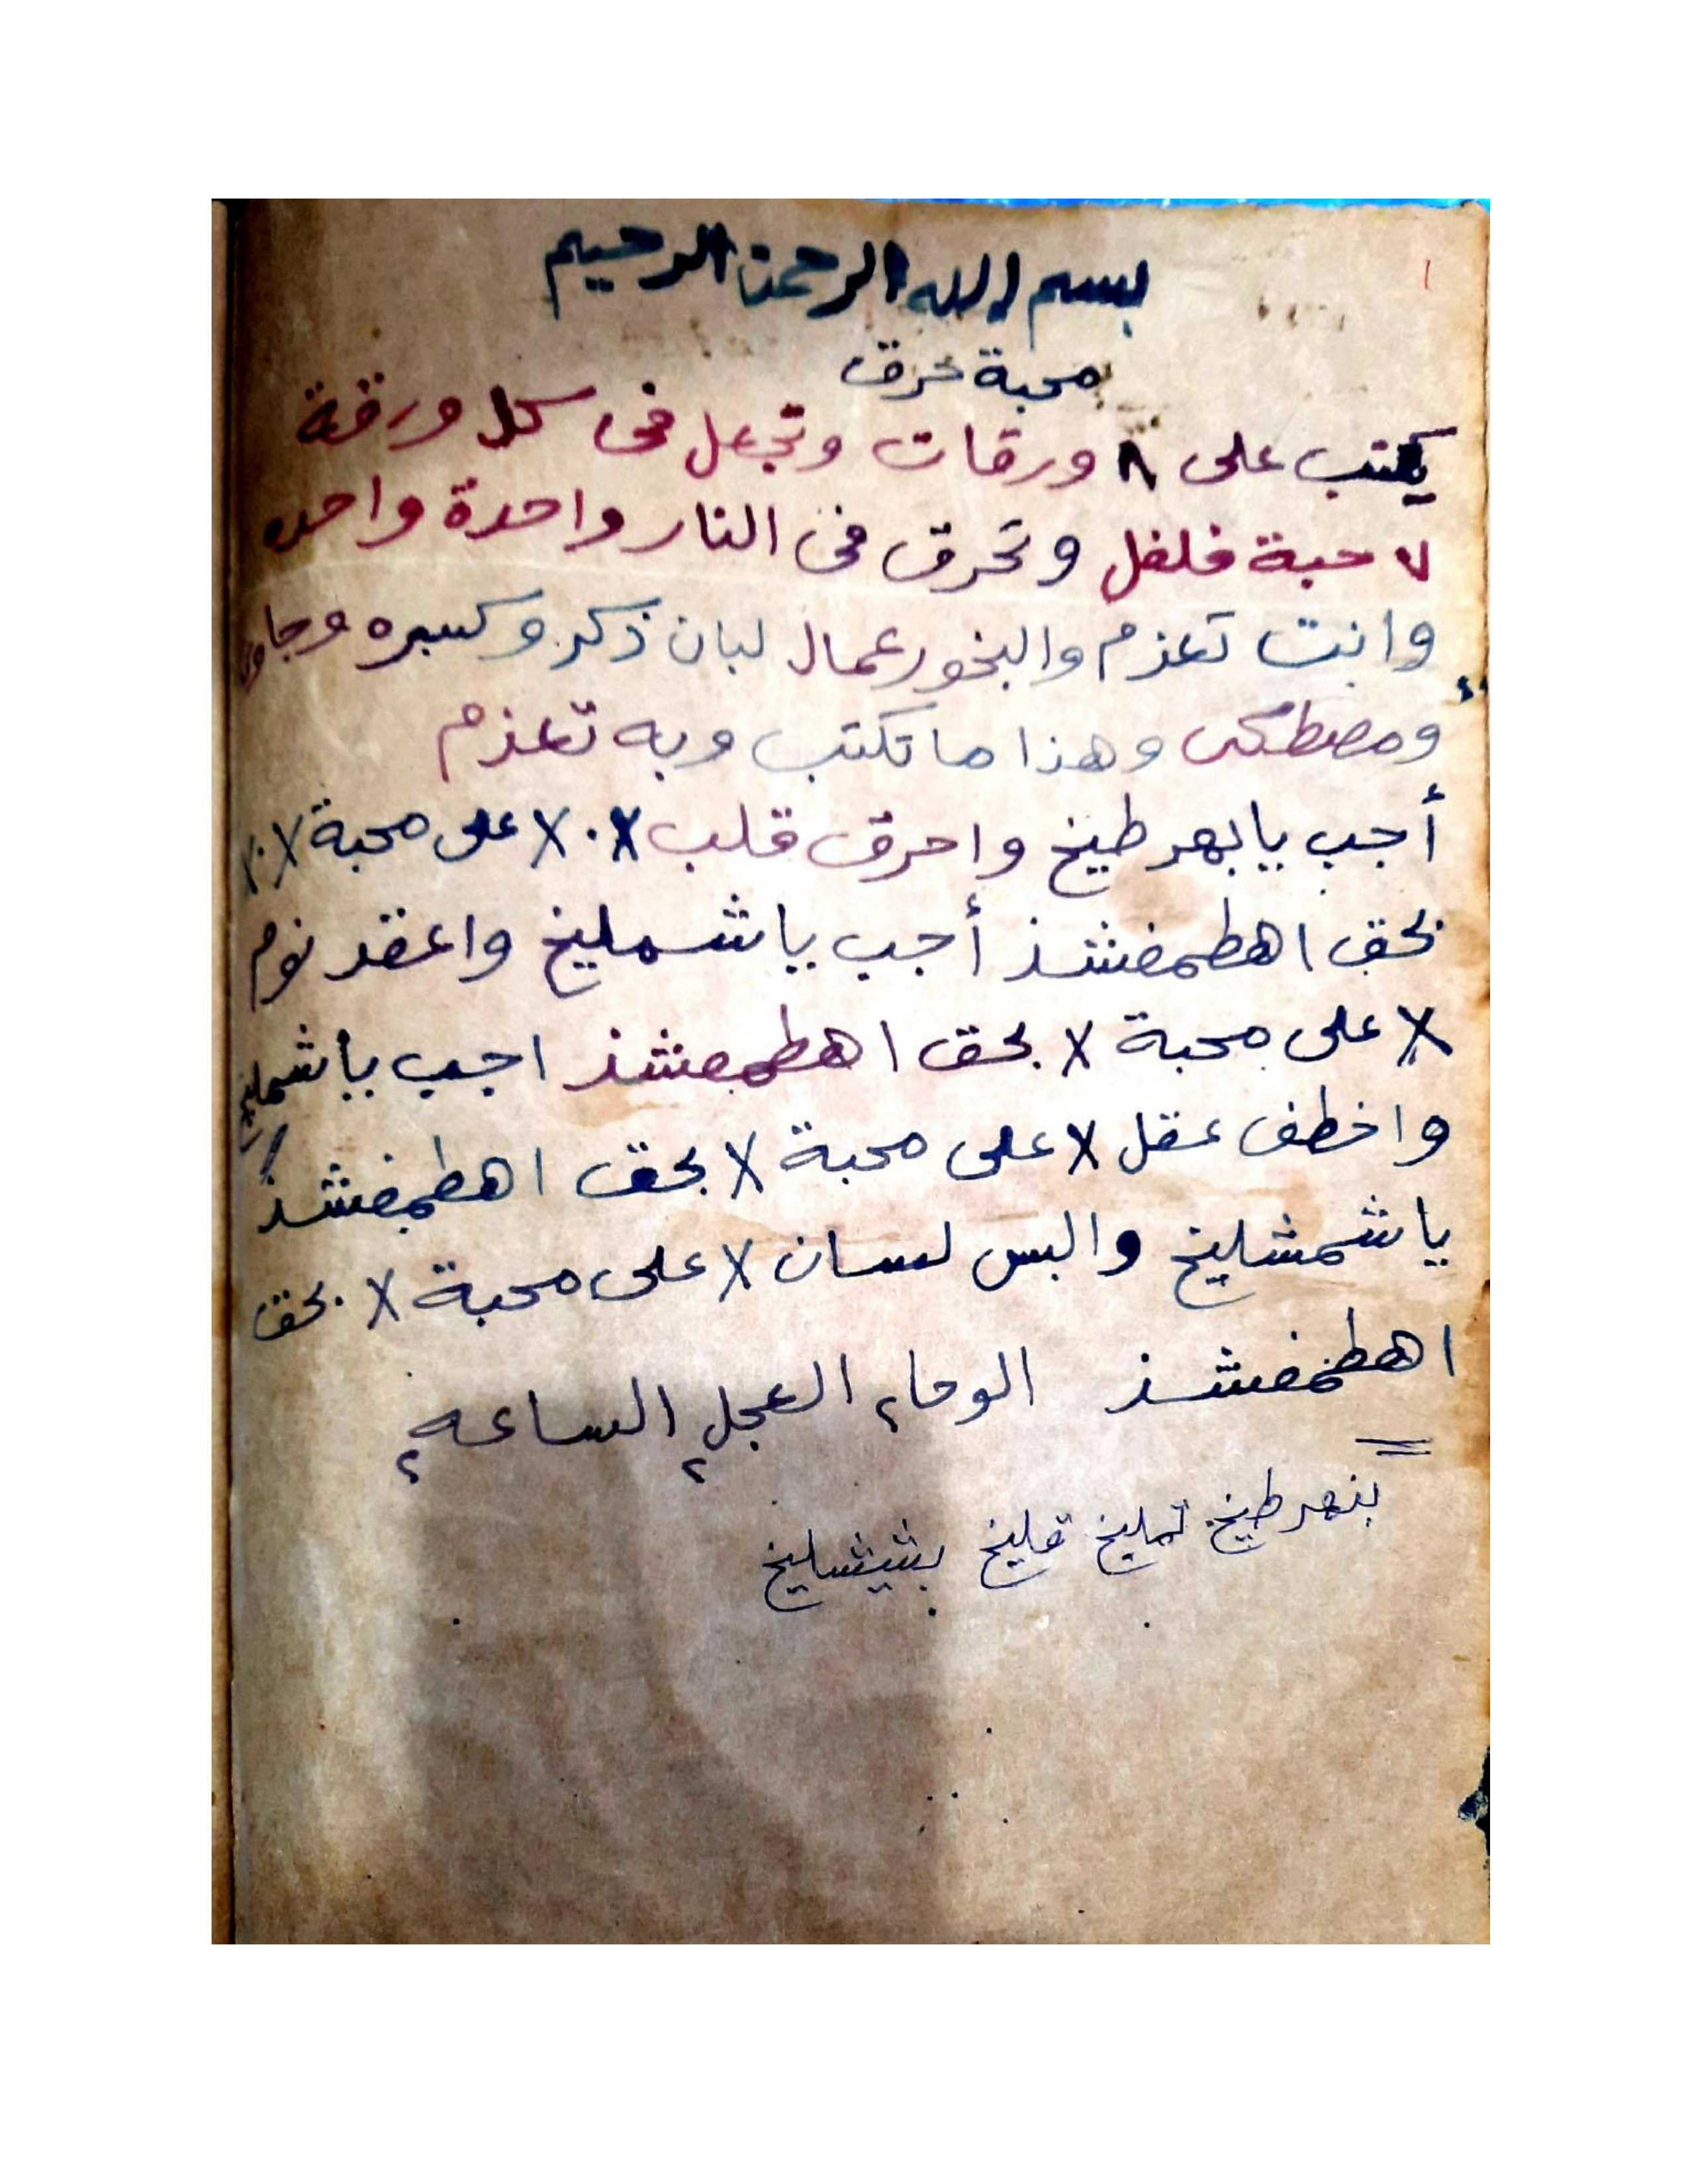 ١
بسم الله الرحمن الرحيم
محبة حرق
يكتب على ٨ ورقات وتجعل فى كل ورقة
٧ حبة فلفل وتحرق فى النار واحدة واحده
وانت تعزم والبخور عمال لبان ذكر وكسبره وجاوى
ومصطكى وهذا ما تكتب وبه تعزم
أجب يا بهرطيخ واحرق قلب X٠X على محبة X٠X
بحق اهطمفشذ أجب يا شمليخ واعقد نوم
X على محبة X بحق اهطمفشذ اجب يا شمليخ
واخطف عقل X على محبة X بحق اهطمفشذ
يا شمشليخ والبس لسان X على محبة X بحق
اهطمفشذ الوحا٢ العجل٢ الساعه٢
بنهرطيخ تمليخ قليخ